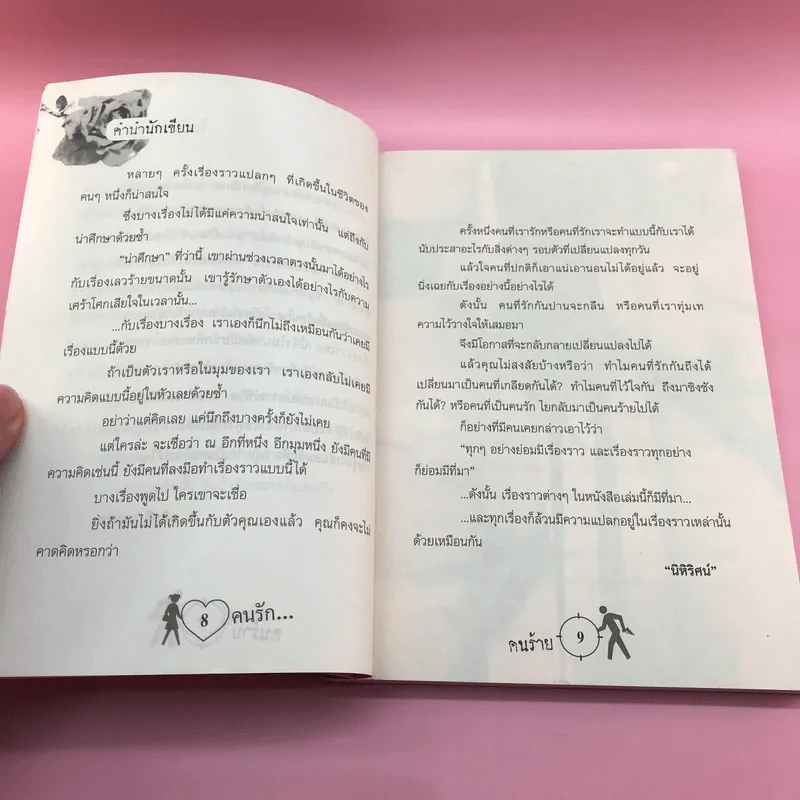 คำนำนักเขียน
หลายๆ ครั้งเรื่องราวแปลกๆ ที่เกิดขึ้นในชีวิตของ
คนๆ หนึ่งก็น่าสนใจ
ซึ่งบางเรื่องไม่ได้มีแค่ความน่าสนใจเท่านั้น แต่ถึงกับ
น่าศึกษาด้วยซ้ำ
“น่าศึกษา” ที่ว่านี้ เขาผ่านช่วงเวลาตรงนั้นมาได้อย่างไร
กับเรื่องเลวร้ายขนาดนั้น เขารู้รักษาตัวเองได้อย่างไรกับความ
เศร้าโศกเสียใจในเวลานั้น...
...กับเรื่องบางเรื่อง เราเองก็นึกไม่ถึงเหมือนกันว่าเคยมี
เรื่องแบบนี้ด้วย
ถ้าเป็นตัวเราหรือในมุมของเรา เราเองกลับไม่เคยมี
ความคิดแบบนี้อยู่ในหัวเลยด้วยซ้ำ
อย่าว่าแต่คิดเลย แค่นึกถึงบางครั้งก็ยังไม่เคย
แต่ใครล่ะ จะเชื่อว่า ณ อีกที่หนึ่ง อีกมุมหนึ่ง ยังมีคนที่มี
ความคิดเช่นนี้ ยังมีคนที่ลงมือทำเรื่องราวแบบนี้ได้
บางเรื่องพูดไป ใครเขาจะเชื่อ
ยิ่งถ้ามันไม่ได้เกิดขึ้นกับตัวคุณเองแล้ว คุณก็คงจะไม่
คาดคิดหรอกว่า
8 คนรัก...
ครั้งหนึ่งคนที่เรารักหรือคนที่รักเราจะทำแบบนี้กับเราได้
นับประสาอะไรกับสิ่งต่างๆ รอบตัวที่เปลี่ยนแปลงทุกวัน
แล้วใจคนที่ปกติก็เอาแน่เอานอนไม่ได้อยู่แล้ว จะอยู่
นิ่งเฉยกับเรื่องอย่างนี้อย่างไรได้
ดังนั้น คนที่รักกันปานจะกลืน หรือคนที่เราทุ่มเท
ความไว้วางใจให้เสมอมา
จึงมีโอกาสที่จะกลับกลายเปลี่ยนแปลงไปได้
แล้วคุณไม่สงสัยบ้างหรือว่า ทำไมคนที่รักกันถึงได้
เปลี่ยนมาเป็นคนที่เกลียดกันได้? ทำไมคนที่ไว้ใจกัน ถึงมาชิงชัง
กันได้? หรือคนที่เป็นคนรัก ไยกลับมาเป็นคนร้ายไปได้
ก็อย่างที่มีคนเคยกล่าวเอาไว้ว่า
“ทุกๆ อย่างย่อมมีเรื่องราว และเรื่องราวทุกอย่าง
ก็ย่อมมีที่มา”
...ดังนั้น เรื่องราวต่างๆ ในหนังสือเล่มนี้ก็มีที่มา...
...และทุกเรื่องก็ล้วนมีความแปลกอยู่ในเรื่องราวเหล่านั้น
ด้วยเหมือนกัน
“นิหิริศน์”
คนร้าย 9